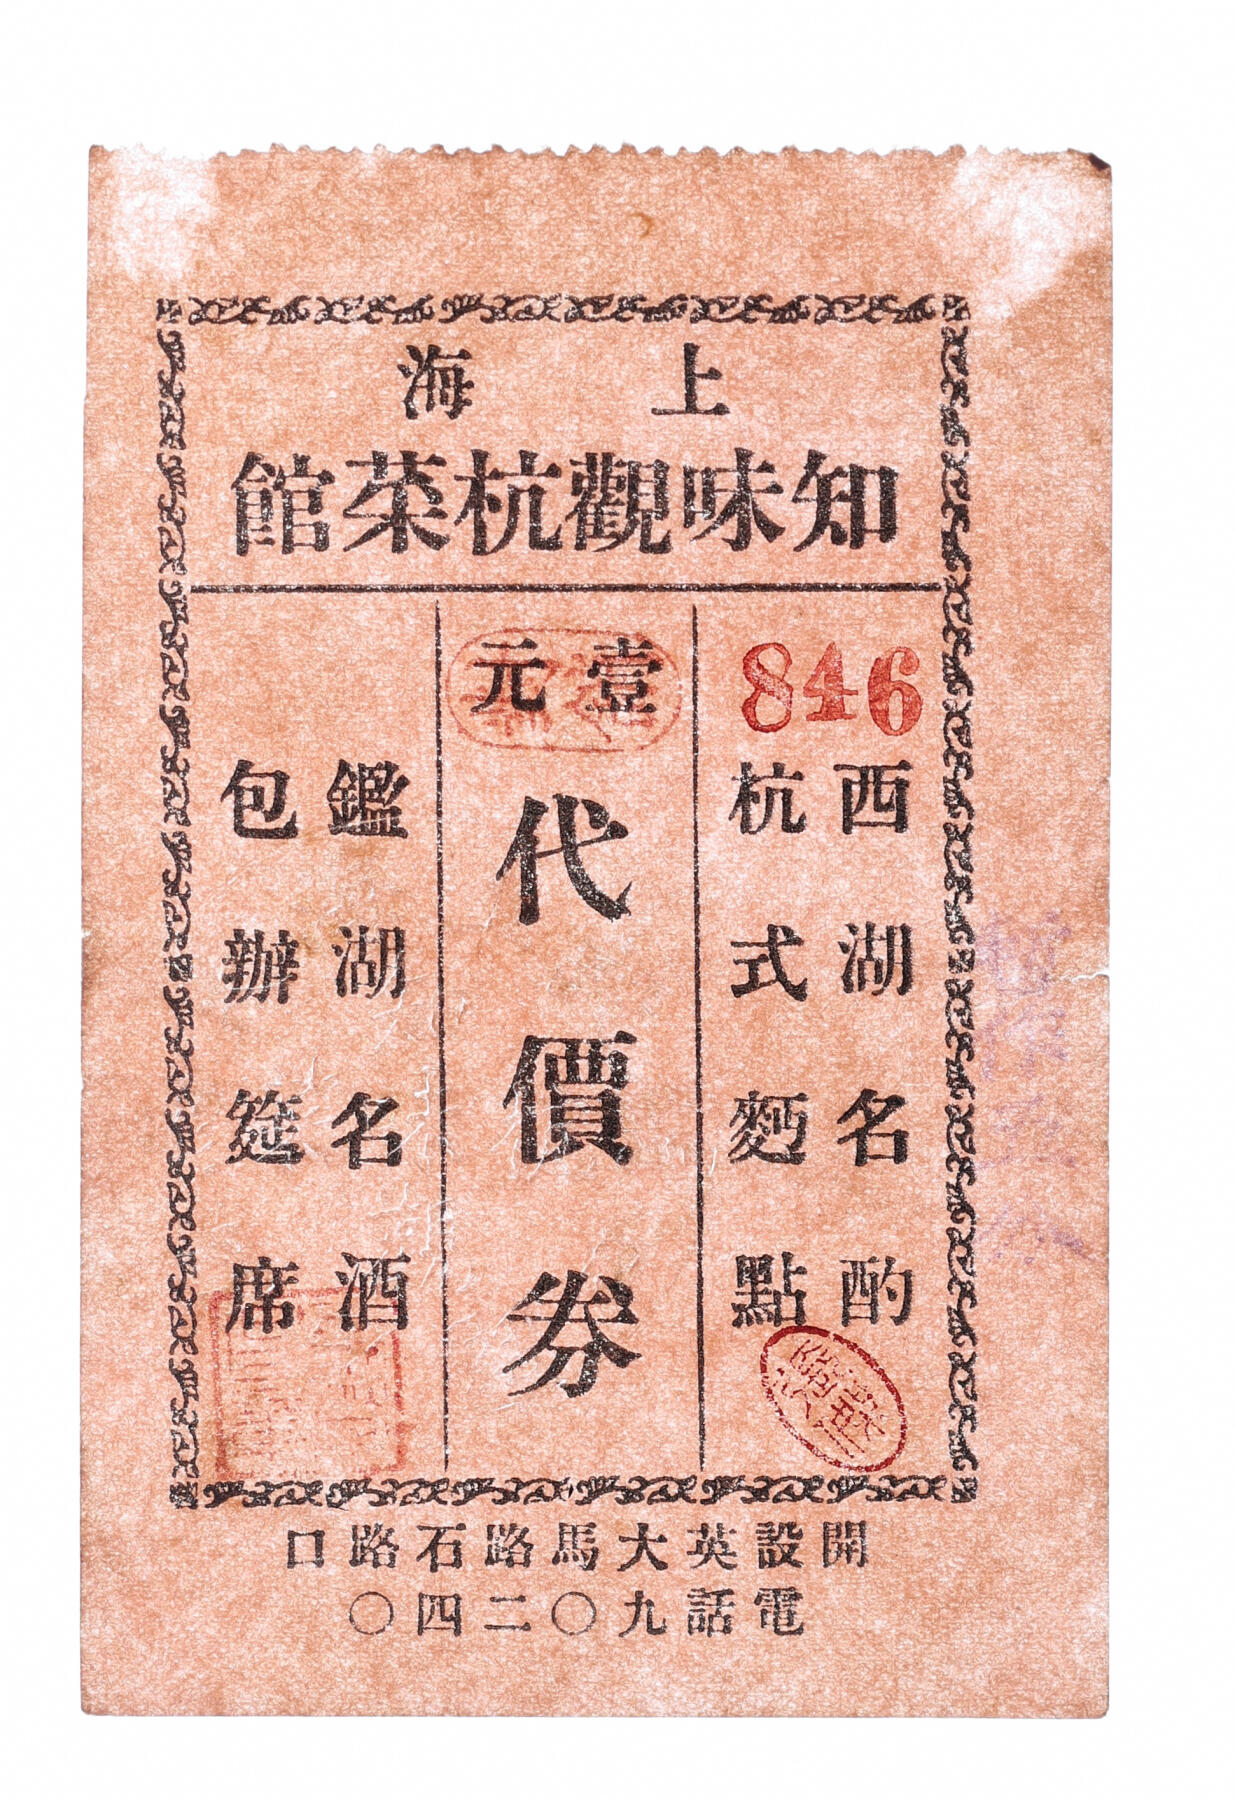 上海
知味觀杭菜館
846
西湖名酌
杭式麪點
壹元
代價券
鑑湖名酒
包辦筵席
開設英大馬路石路口
電話九〇二四〇